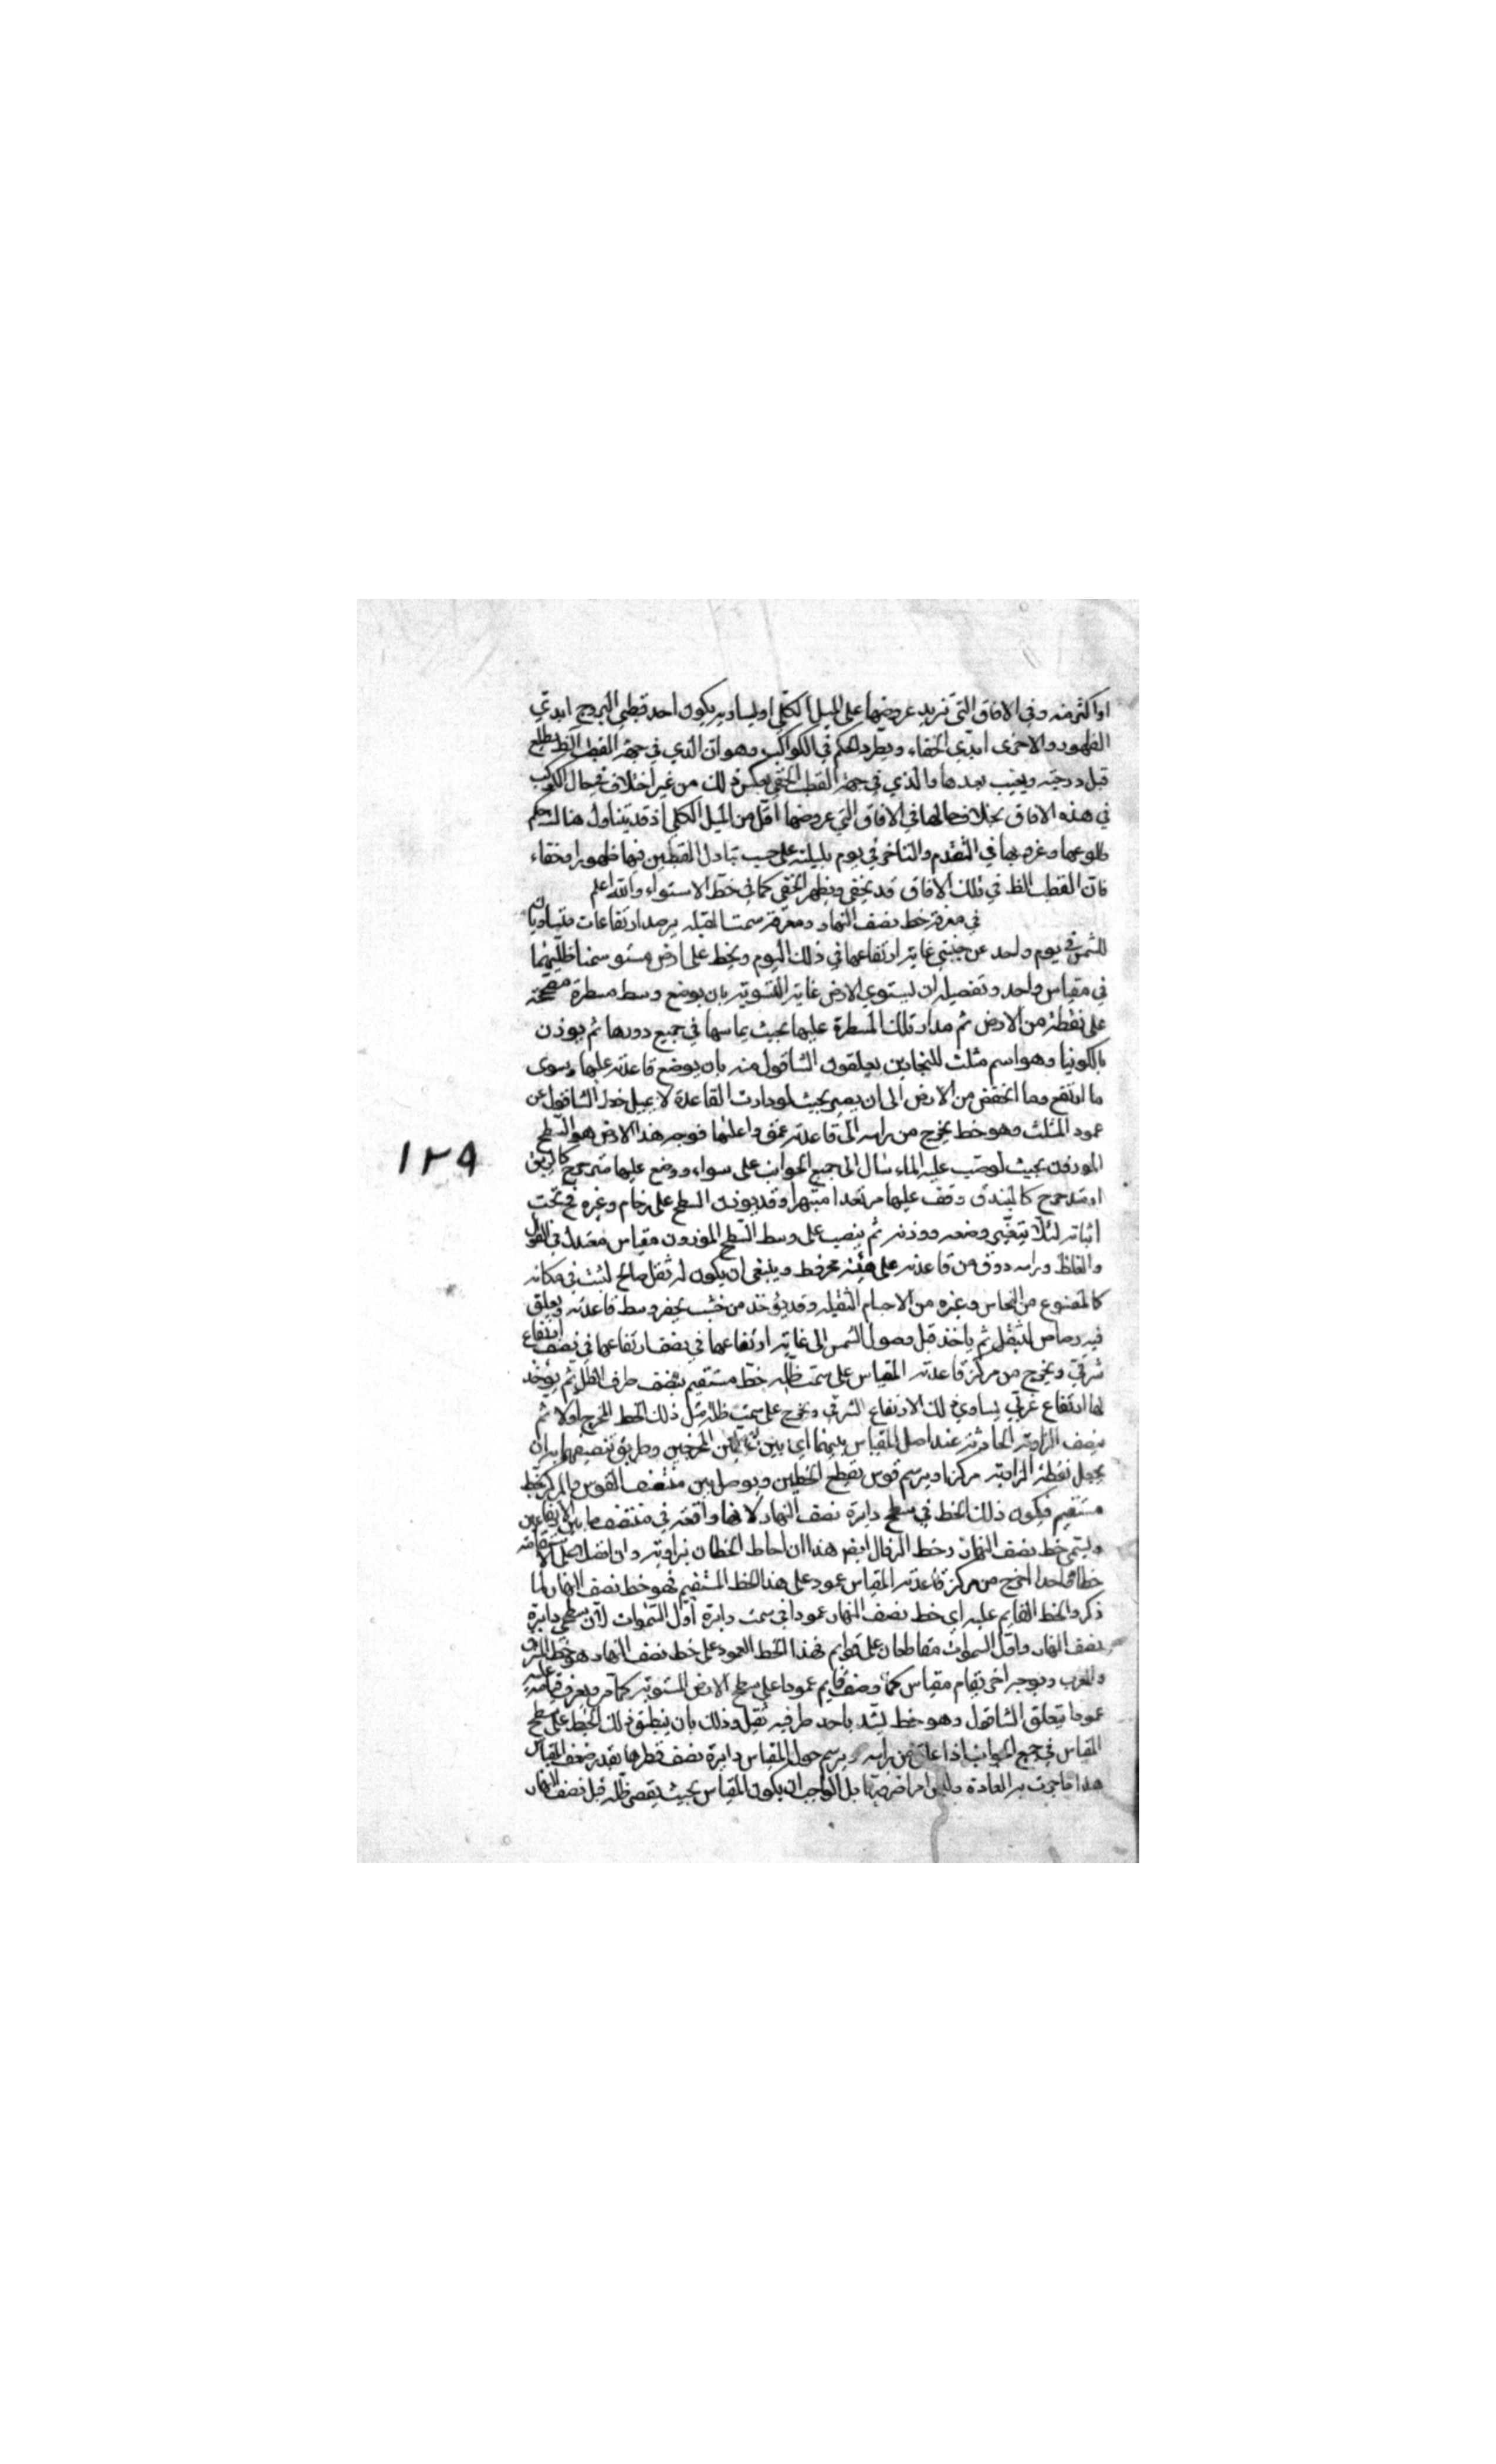 او اكثر منه وفي الافاق التي تزيد عروضها على الميل الكلي او يساويه يكون احد قطبي البروج ابدي
الظهور والاخرى ابدي الخفاء ويطرد الحكم في الكواكب وهو ان الذي في جهة القطب الظ يطلع
قبل درجته ويغيب بعدها والذي في جهة القطب الخفي بعكس ذلك من غير اختلاف في حال الكوكب
في هذه الافاق بخلاف حالها في الافاق التي عروضها اقل من الميل الكلي اذ قد يتناول هنالك حكم
طلوعها وغروبها في التقدم والتاخر في يوم بليلته على حسب تبادل القطبين فيها ظهورا وخفاء
فان القطب الظ في تلك الافاق قد يخفى ويظهر الخفي كما في خط الاستواء والله اعلم
في معرفة خط نصف النهار ومعرفة سمت القبلة يرصد ارتفاعات متساويان
للشمس في يوم واحد عن جنبتي غاية ارتفاعها في ذلك اليوم ويخط على ارض مستو سمتا ظليهما
في مقياس واحد وتفصيله ان يستوي الارض غاية التسوية بان يوضع وسط مسطرة مصححة
على نقطة من الارض ثم مدار تلك المسطرة عليها بحيث يماسها في جميع دورها ثم يوزن
بالكونيا وهو اسم مثلث للنجارين يعلقون الشاقول منه بان يوضع قاعدته عليها ويسوى
ما ارتفع وما انخفض من الارض الى ان يصير بحيث لو دارت القاعدة لا يميل خط الشاقول عن
عمود المثلث وهو خط يخرج من راسه الى قاعدته عمق واعلها فوجه هذا الارض هو السطح
الموزون بحيث لو صب عليه الماء سال الى جميع الجوانب على سواء ووضع عليها مترجرج كالزيبق
او متدحرج كالبندق وقف عليها مرتعدا متهترا وقد يوزن السطح على رخام وغيره فح تحت
اثباته لئلا يتغير وضعه ووزنه ثم ينصب على وسط السطح الموزون مقياس معتدل في الطول
والغلظ وراسه دوق من قاعدته على هيئة مخروط وينبغي ان يكون له ثقل صالح لثبت في مكانه
كالمصنوع من النحاس وغيره من الاجسام الثقيلة وقد يؤخذ من خشب يحفر وسط قاعدته ويعلق
فيه رصاص لتثقل ثم ياخذ قبل وصول الشمس الى غاية ارتفاعها في نصف ارتفاعها في نصف ارتفاع
شرقي ويخرج من مركز قاعدته المقياس على سمت ظله خط مستقيم ينصف طرف الظل ثم يؤخذ
لها ارتفاع غربي يساوي ذلك الارتفاع الشرقي ويخرج على سمت ظله مثل ذلك الخط المخرج اولا ثم
ينصف الزاوية الحادثة عند اصل المقياس بينهما اي بين الخطين المخرجين وطريق تنصيفهما به ان
يجعل نقطة الزاوية مركزا ويرسم قوس يقطع الخطين ويوصل بين منتصف القوس والمركز بخط
مستقيم فيكون ذلك الخط في سطح دايرة نصف النهار لانها واقعة في منتصف ما بين الارتفاعين
ويسمى خط نصف النهار وخط الزوال ايضا هذا ان احاط الخطان بزاوية وان اتصلا على الاستقامة
خطا واحدا اخرج من مركز قاعدته المقياس عمود على هذا الخط المستقيم فهو خط نصف النهار لما
ذكر والخط القايم عليه اي خط نصف النهار عمودا في سمت دايرة اول السموات لان سطحي دايرة
نصف النهار واول السموات متقاطعان على قوايم فهذا الخط العمود على خط نصف النهار هو خط المشرق
والمغرب وبوجه اخر يقام مقياس كما وصف قايم عمودا على سطح الارض المستوية كما مر ويعرف قيامه عليه
عمودا يتعلق الشاقول وهو خط يشد باحد طرفيه ثقيل وذلك بان ينطبق ذلك الخيط على سطح
المقياس في جميع الجوانب اذا علق من راسه ويرسم حول المقياس دايرة نصف قطرها بقدر ضعف المقياس
هذا ما جرت به العادة وليس امرا ضروريا بل الواجب ان يكون المقياس بحيث يقصر ظله قبل نصف النهار
١٢٩